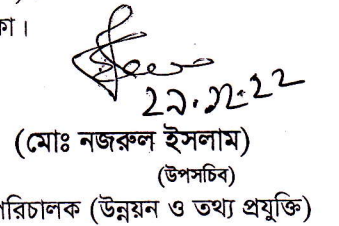 কা।
২৯.১২.২২
(মোঃ নজরুল ইসলাম)
(উপসচিব)
রিচালক (উন্নয়ন ও তথ্য প্রযুক্তি)